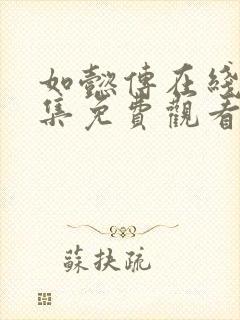 如懿傳在綫
集免費觀看
蘇扶疏